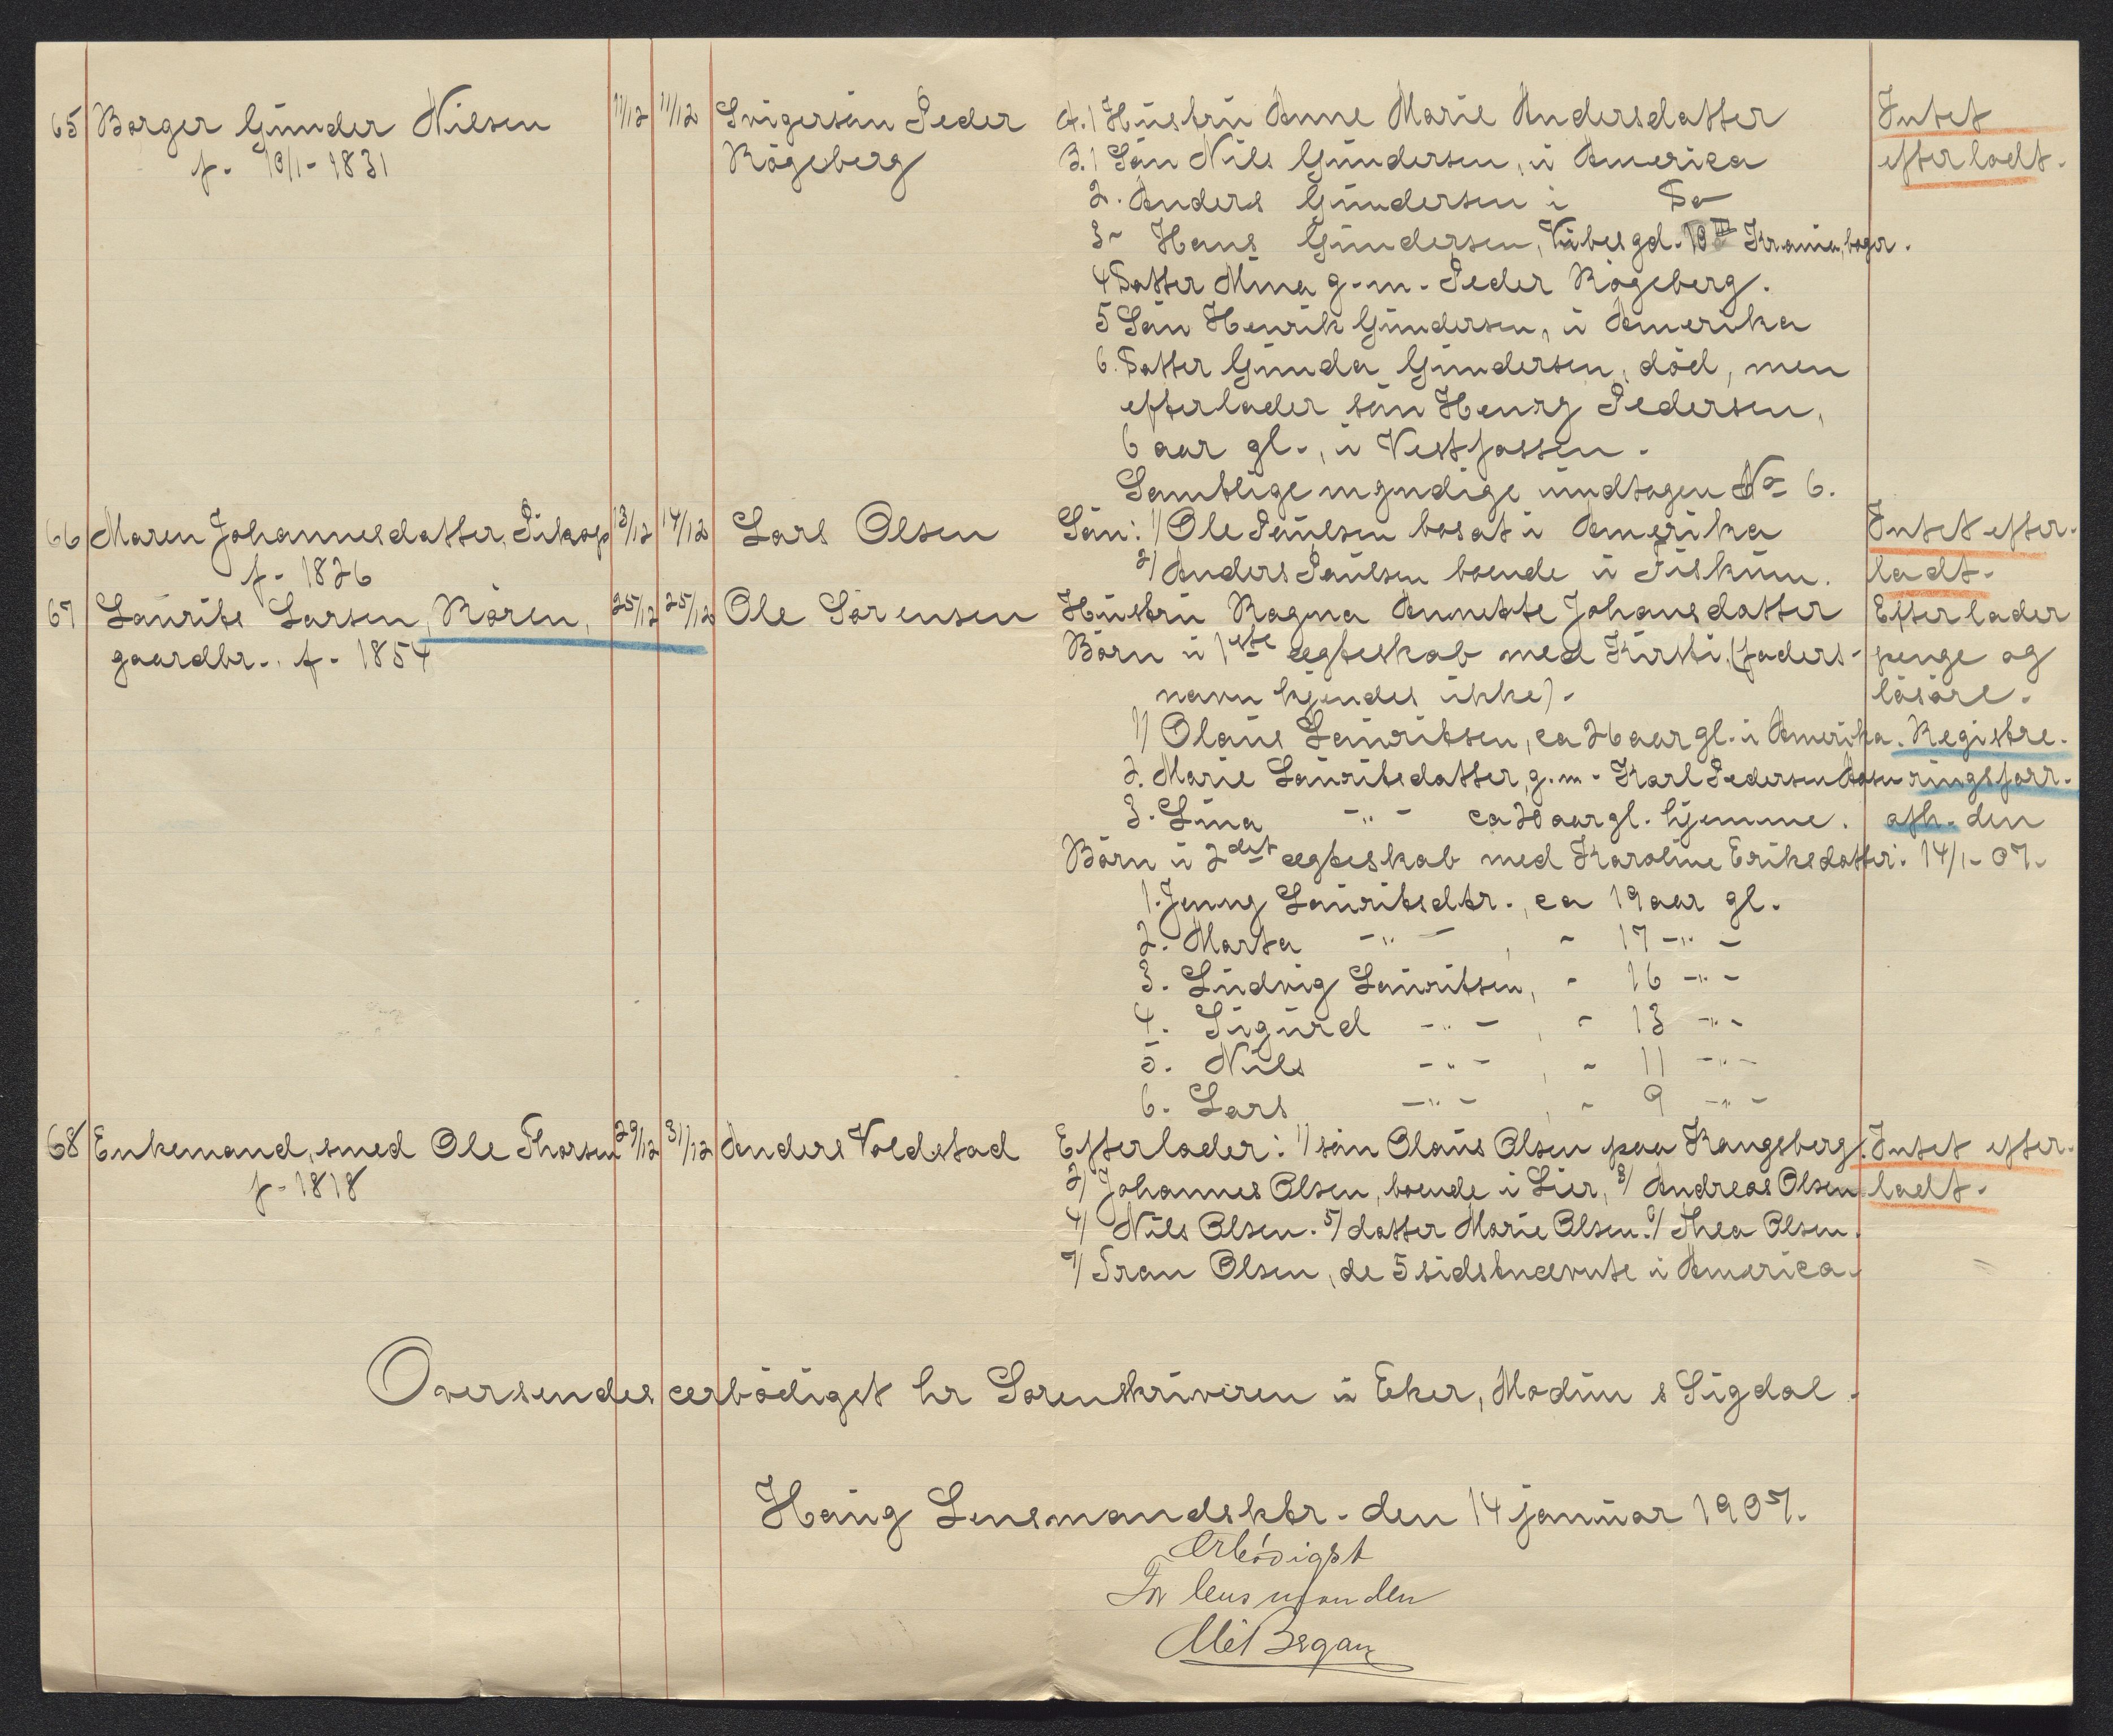 65 Borger Gunder Nilsen 11/12 11/12 Svigersøn Peder A.) Hustru Anne Marie Andersdatter Intet
f. 10/1-1831 Røgeberg B.1 Søn Nils Gundersen, i America efterladt.
2. Anders Gundersen i Do
3- Hans Gundersen, Vibesgd. 10 III Krania, bager.
4 Datter Mina g.m. Peder Røgeberg.
5 Søn Henrik Gundersen, i Amerika
6. Datter Gunda Gundersen, död, men
efterlader søn Henry Pedersen,
6 aar gl., i Vestfossen.
Samtlige myndige undtagen No 6.
66 Maren Johannesdatter, 13/12 14/12 Lars Olsen Søn: 1/ Ole Paulsen bosat i Amerika Intet efter-
f. 1826 2/ Anders Paulsen boende i Fiskum. ladt.
67 Laurits Larsen, Røren, 25/12 25/12 Ole Sørensen Hustru Ragna Annette Johansdatter Efterlader
gaardbr. f. 1854 Børn i 1ste ægteskab med Kirsti (faders- penge og
navn kjendes ikke). løsøre.
1) Olaus Lauritsen, ca 26 aar gl. i Amerika. Registre-
2. Marie Lauritsdatter, g.m. Karl Pedersen Aasen ringsforr.
3. Lina -"- ca 20 aar gl. hjemme. afh. den
Børn i 2det ægteskab med Karoline Eriksdatter: 14/1-07.
1. Jenny Lauritsdtr., ca 19 aar gl.
2. Marta -"- , - 17 -"-
3. Ludvig Lauritsen, - 16 -"-
4. Sigurd -"- , - 13 -"-
5. Nils -"- , - 11 -"-
6. Lars -"- , - 9 -"-
68 Enkemand, smed Ole Thorsen 29/12 31/12 Anders Voldstad Efterlader: 1) søn Olaus Olsen paa Kongsberg. Intet efter-
f. 1818 2/ Johannes Olsen, boende i Lier, 3/ Andreas Olsen ladt.
4/ Nils Olsen. 5/ datter Marie Olsen. 6/ Thea Olsen.
7/ Olsen, de 5 sidstnævnte i America.
Oversendes ærbødigst hr Sorenskriveren i Eker, Modum & Sigdal.
Haug Lensmandsktr. den 14 januar 1907.
Ærbödigst
For lensmanden